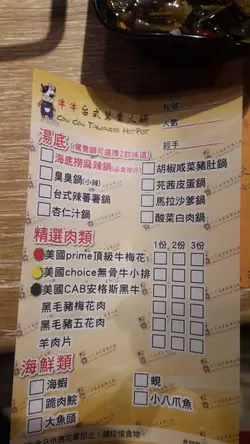 牛牛台式鴛鴦火鍋
COW COW TAIWANESS HOTPOT
檯號
人數
經手
湯底(鴛鴦鍋可選擇2款味道)
海底撈麻辣鍋(必食推介)
臭臭鍋(小辣)
台式辣番薯鍋
杏仁汁鍋
胡椒咸菜豬肚鍋
芫茜皮蛋鍋
馬拉沙爹鍋
酸菜白肉鍋
精選肉類 1份 2份 3份
美國prime頂級牛梅花
美國choice無骨牛小排
美國CAB安格斯黑牛
黑毛豬梅花肉
黑毛豬五花肉
羊肉片
海鮮類
海蝦
跪肉鯇
大魚頭
蜆
小八爪魚
請珍惜食物